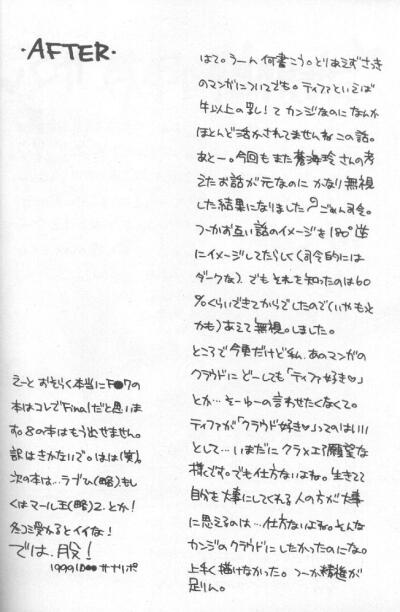 ・AFTER・
はて。うーん何書こう。とりあえずさっき
のマンガについてでも。ティファといえば
牛以上の乳！てカンジなのになんか
ほとんど活かされてませんねこの話。
あとー。今回もまた蒼海玲さんの考
えたお話が元なのにかなり無視
した結果になりました？ごめん司令。
つーかお互い話のイメージを180°逆
にイメージしてたらしく(司令的には
ダークな)。でもそれを知ったのは60
%くらいできてからでしたので(いやもっと
かも)あえて無視。しました。
ところで今更だけど私、あのマンガの
クラウドにどーしても「ティファ好き♡」
とか…そーゆーの言わせたくなくて。
ティファが「クラウド好き♡」ってのはいい
として…いまだにクラ×エア願望な
様です。でも仕方ないよね。生きてて
自分を大事にしてくれる人の方が大事
に思えるのは…仕方ないよね。そんな
カンジのクラウドにしたかったのにな。
上手く描けなかった。つーか精進が
足りん。
えーとおそらく本当にF●7の
本はコレでFinalだと思いま
す。8の本はもう出せません。
訳はきかないで。はは(笑)
次の本は…ラブひ(略)もし
くはマール王(略)2.とか！
冬コミ受かるとイイな！
では、股！